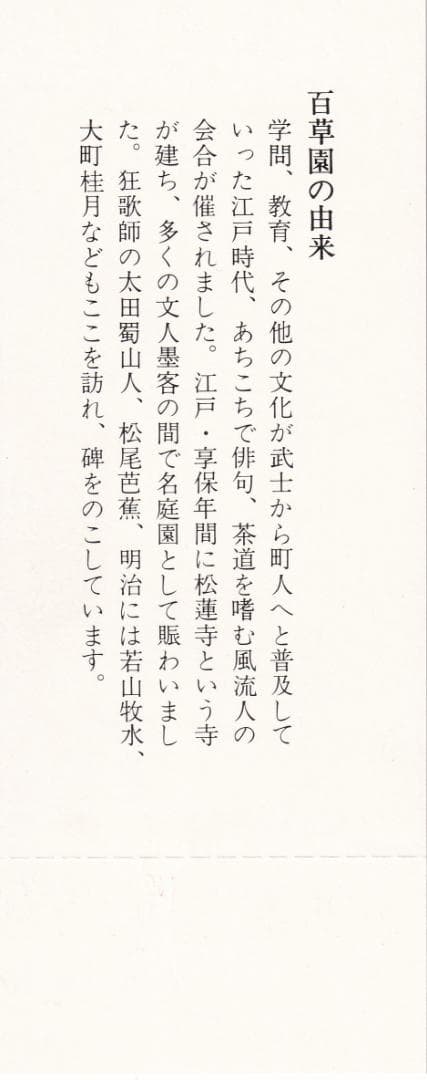 百草園の由来
学問、教育、その他の文化が武士から町人へと普及して
いった江戸時代、あちこちで俳句、茶道を嗜む風流人の
会合が催されました。江戸・享保年間に松蓮寺という寺
が建ち、多くの文人墨客の間で名庭園として賑わいまし
た。狂歌師の太田蜀山人、松尾芭蕉、明治には若山牧水、
大町桂月などもここを訪れ、碑をのこしています。